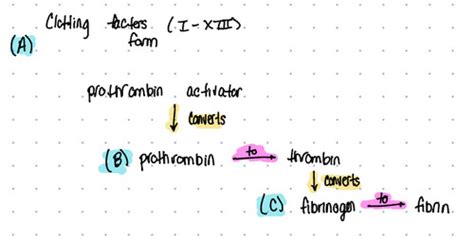 Clotting factors (I-XIII)
(A) form
prothrombin activator
converts
(B) prothrombin to thrombin
converts
(C) fibrinogen to fibrin